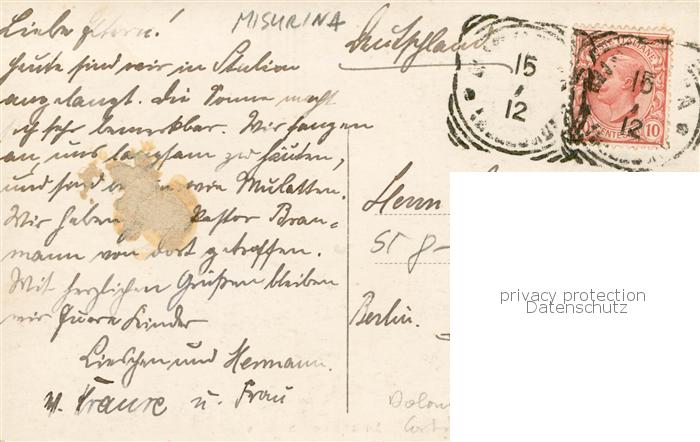 MISURINA
Liebe Eltern!
Heute sind wir in Station
angelangt. Die Sonne macht
sich sehr bemerkbar. Wir fangen
an, uns langsam zu häuten,
und sind wie Mulatten.
Wir haben Pastor Brau-
mann von dort getroffen.
Mit herzlichen Grüßen bleiben
wir Eure Kinder
Lieschen und Hermann.
u. Frau
Deutschland
15
12
15
12
10
Herrn
Berlin.
privacy protection
Datenschutz